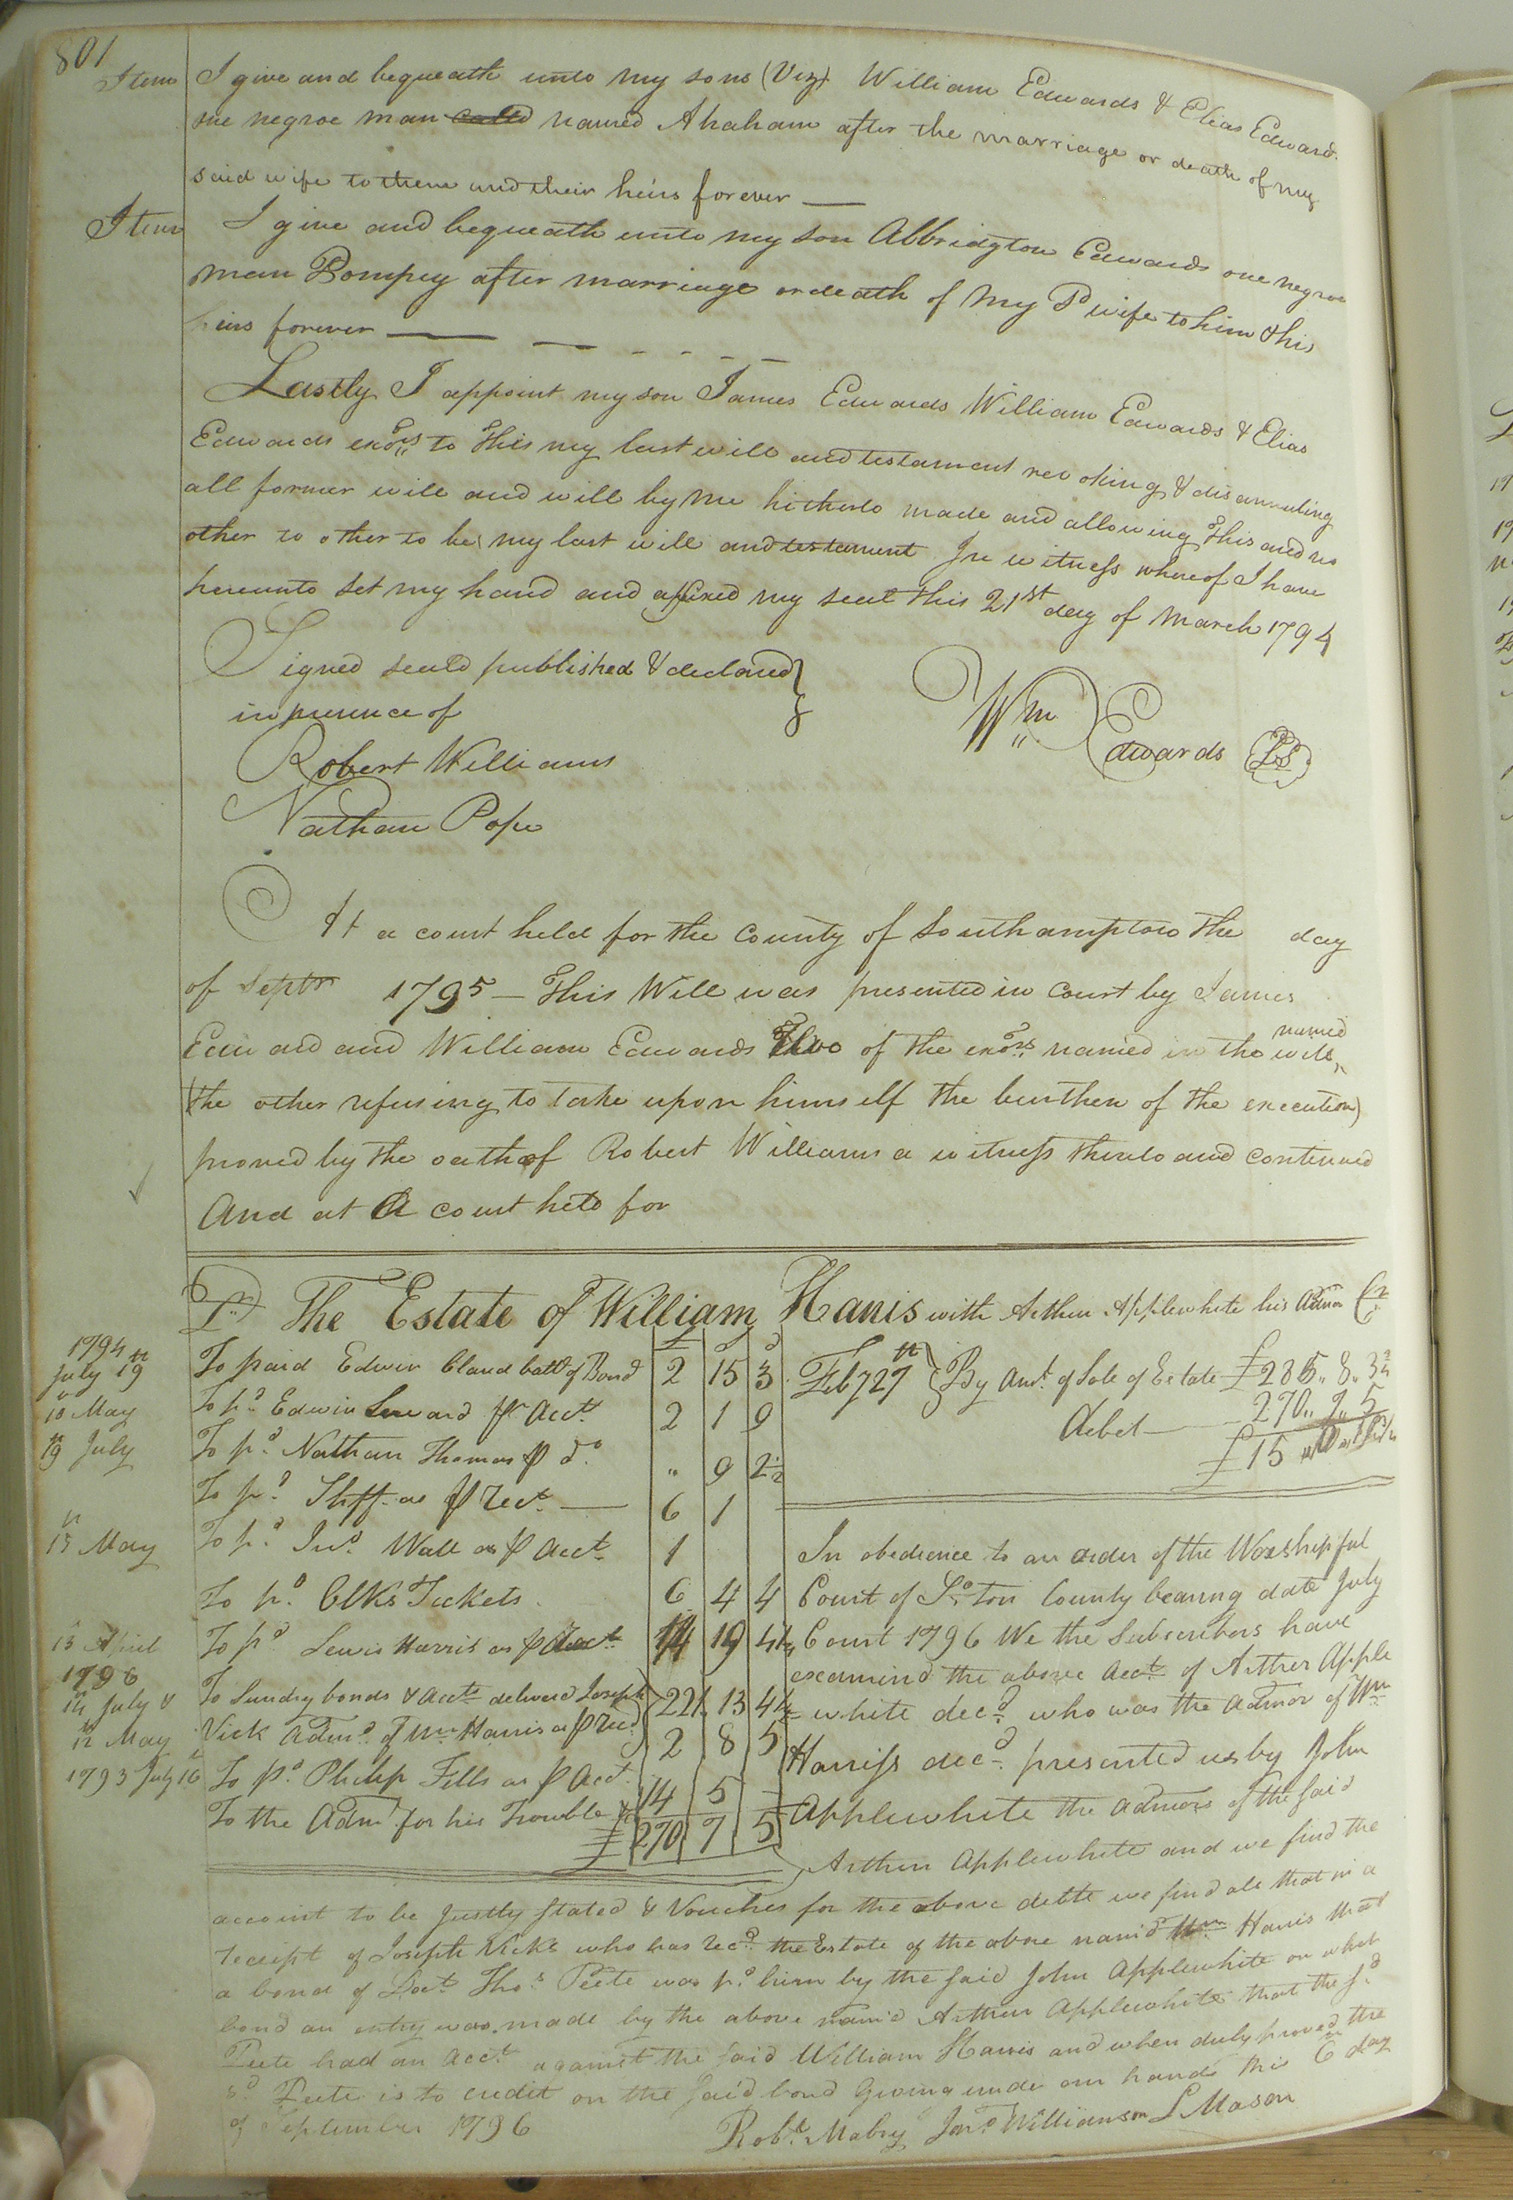 801
Item I give and bequeath unto my sons (Viz) William Edwards & Elias Edwards
one negroe man called named Abaham after the marriage or death of my
said wife to them and their heirs forever
Item I give and bequeath unto my son Albridgton Edwards one negroe
man Pompey after marriage or death of my Sd wife to him & his
heirs forever
Lastly I appoint my son James Edwards William Edwards & Elias
Edwards exors to this my last will and testament revoking & disannuling
all former will and will by me hitherto made and allowing this and no
other to other to be my last will and testament In witness whereof I have
hereunto set my hand and affixed my seal this 21st day of March 1794
Signed seald published & declared
in presence of
Robert Williams
Nathan Pope
Wm Edwards LS
At a court held for the County of Southampton the day
of Septr 1795 — This Will was presented in Court by James
Edward and William Edwards two of the exors named in the named will,
the other refusing to take upon himself the burthen of the execution
proved by the oath of Robert Williams a witness thereto and continued
And at a court held for
Dr The Estate of William Harris with Arthur Applewhite his Admr Cr
£ s d
1794
July 19th To paid Edwin Claud ball of Bond 2 15 3
10 May To pd Edwin pr Acct 2 1 9
19 July To pd Nathan Thomas p do " 9 2½
To pd Shff as p rect — 6 1
15 May To pd Jno Wall as p Acct 1
To pd Clks Tickets 6 4 4
15 April To pd Lewis Harris as p Acct 14 19 4½
1796
14 July & To Sundry bonds & Accts deliverd Joseph
12 May Vick Admr of Wm Harris as p rect 221 13 4½
1793 July 16 To pd Philip Fells as p Acct 2 8 5
To the Admr for his Trouble &c 14 5 —
£ 270 7 5
Feby 27th By Amt of Sale of Estate £ 285,, 8,, 3¾
debet — 270,, 7,, 5
£15
In obedience to an order of the Worshipful
Court of So ton County bearing date July
Court 1796 We the Subscribers have
examined the above Acct of Arthur Apple
white decd who was the Admor of Wm
Harriss decd presented us by John
Applewhite the Admor of the said
Arthur Applewhite and we find the
account to be Justly stated & Vouches for the above debts we find all that in a
receipt of Joseph Vicks who has recd the Estate of the above namd Wm Harris that
a bond of Doct Thos Peete was pd him by the said John Applewhite on which
bond an entry was made by the above namd Arthur Applewhite that the sd
Peete had an Acct against the said William Harris and when duly proved the
sd Peete is to credit on the said bond Giving under our hands this 6th day
of September 1796
Robt Mabry Jno Williamson L Mason